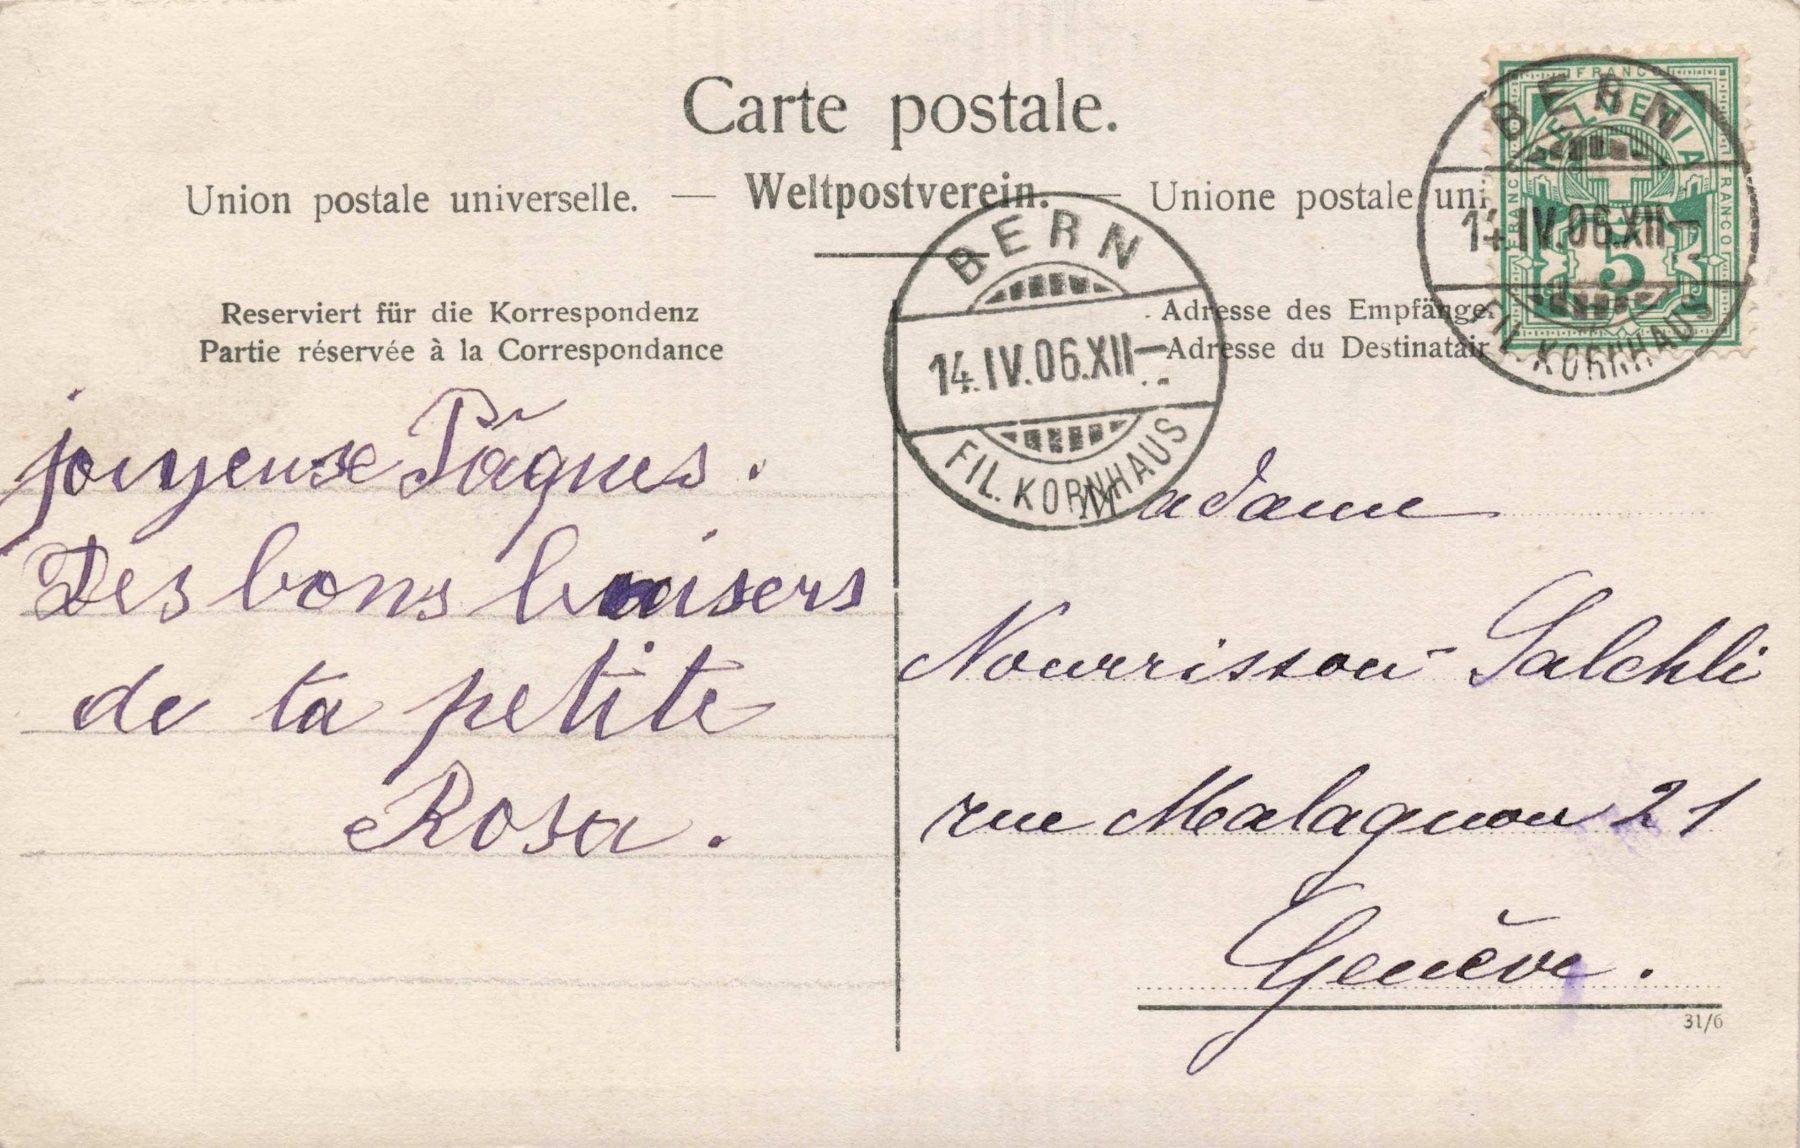 Carte postale.
Union postale universelle. — Weltpostverein. — Unione postale uni
FRANCO
HELVETIA
FRANCO
FRANCO
5
BERN
14.IV.06.XII—
FIL. KORNHAUS
BERN
14.IV.06.XII—
FIL. KORNHAUS
Reserviert für die Korrespondenz
Partie réservée à la Correspondance
Adresse des Empfänge
Adresse du Destinatair
joyeuse Pâques.
Des bons baisers
de ta petite
Rosa.
Madame
Nourrisson-Salchli
rue Malagnou 21
Genève.
31/6